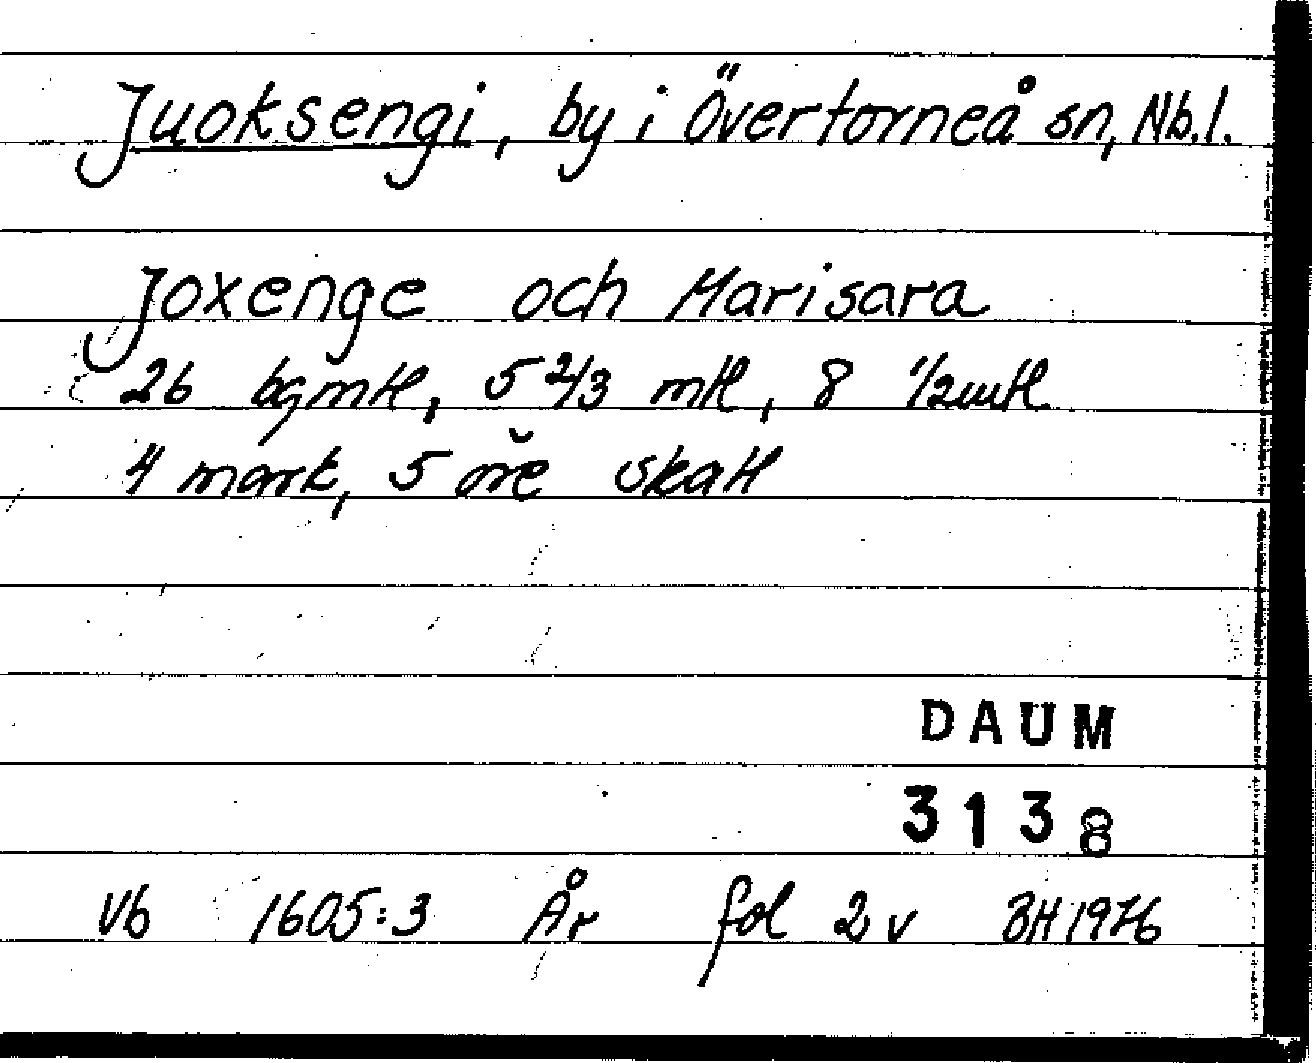 Juoksengi, by i Övertorneå sn, Nb.l.
Joxenge och Marisara
26 bgmtl, 5 2/3 mtl, 8 1/2mtl
4 mark, 5 öre skatt
DAUM
3138
Vb 1605:3 År fol 2v BH 1976